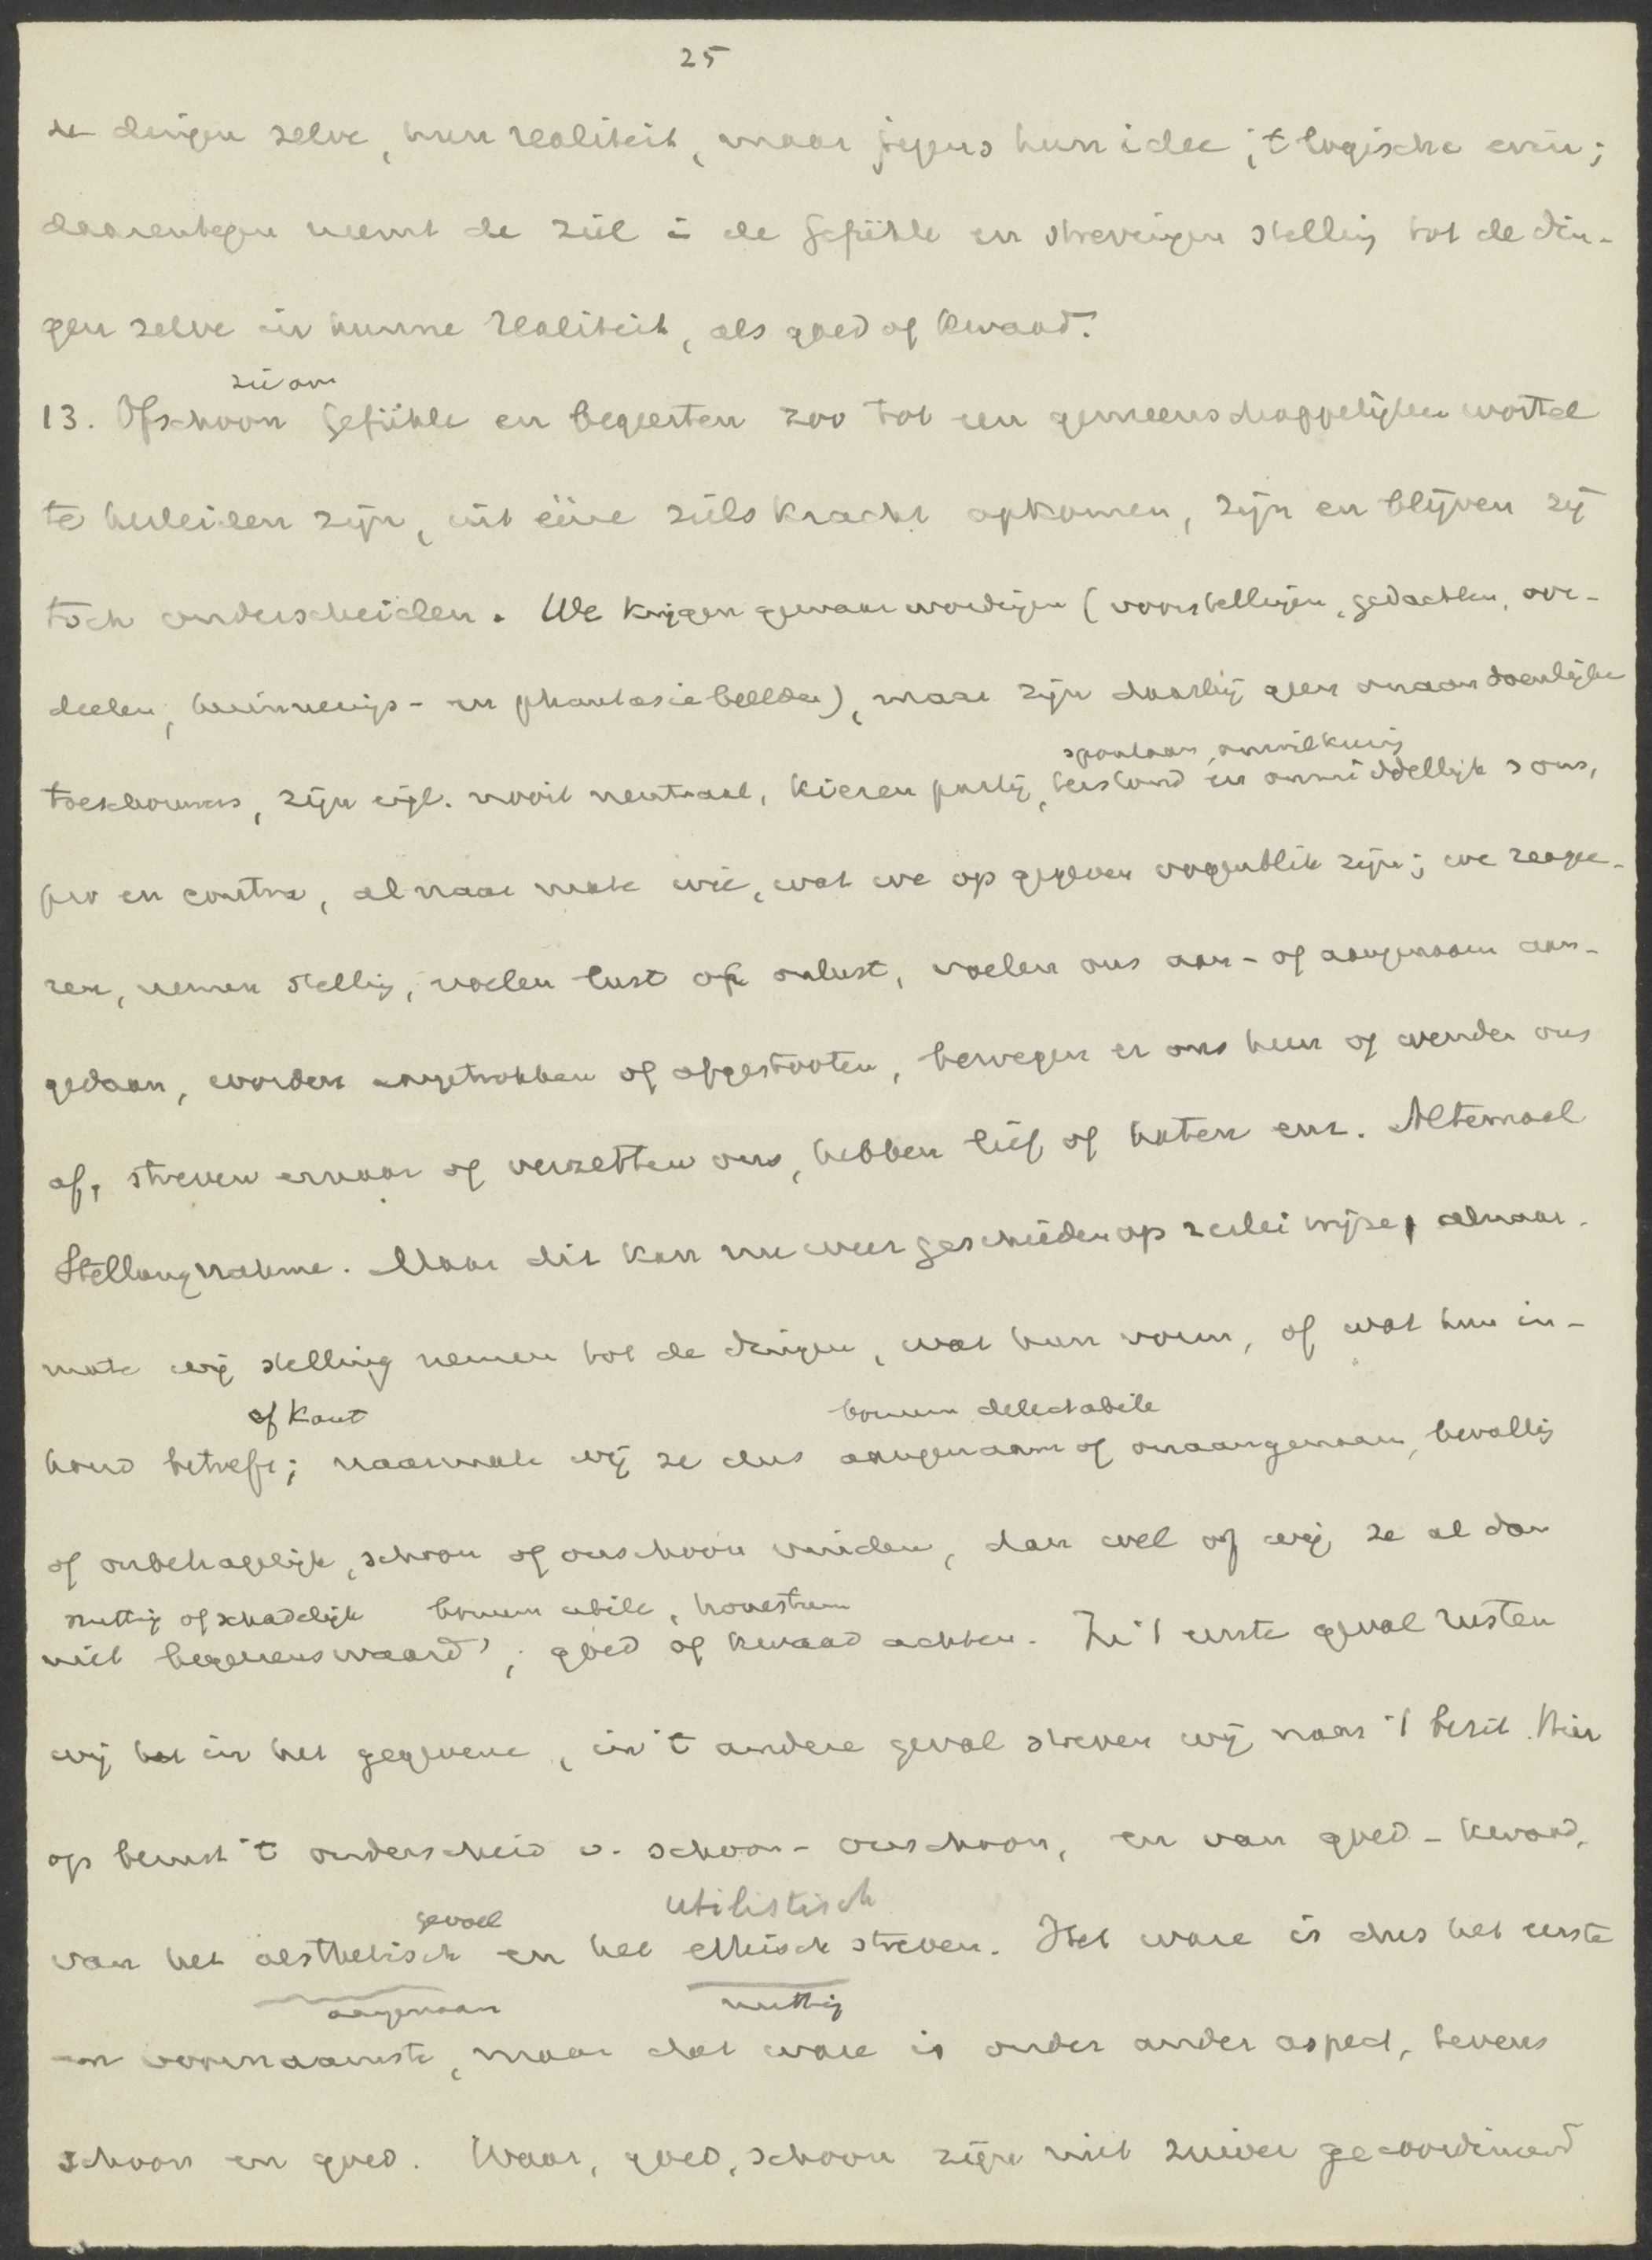 25
de dingen zelve, hun realiteit, maar jegens hun idee, 't logische erin;
daarentegen neemt de ziel in de Gefühle en strevingen stelling tot de din-
gen zelve in hunne realiteit, als goed of kwaad.
13. Ofschoon Gefühle en begeerten zoo tot een gemeenschappelijken wortel
te herleiden zijn, uit ééne zielskracht opkomen, zijn en blijven zij
toch onderscheiden. We krijgen gewaarwordingen (voorstellingen, gedachten, oor-
deelen, herinnerings- en phantasiebeelden), maar zijn daarbij geen onaandoenlijke
spontaan, onwillkeurig
toeschouwers, zijn eigl. nooit neutraal, kiezen partij, terstond en onmiddellijk
pro en contra, al naar mate wie, wat we op gegeven oogenblik zijn; we reagee-
ren, nemen stelling, voelen lust of onlust, voelen ons aan- of aangenaam aan-
gedaan, worden aangetrokken of afgestooten, bewegen er ons heen of wenden ons
af, streven ernaar of verzetten ons, hebben lief of haten enz. Altemaal
Stellungnahme. Maar dit kan nu weer geschieden op 2erlei wijze, alnaar-
mate wij stelling nemen tot de dingen, wat hun vorm, of wat hun in-
of Kant bonum delectabile
houd betreft; naarmate wij ze dus aangenaam of onaangenaam, bevallig
of onbehagelijk, schoon of onschoon vinden, dan wel of wij ze al dan
nuttig of schadelijk bonum utile, honestum
niet begeerenswaard, goed of kwaad achten. In 't eerste geval rusten
wij in het gegevene, in 't andere geval streven wij naar 't bezit. Hier
op berust 't onderscheid v. schoon - onschoon, en van goed - kwaad,
gevoel utilistisch
van het aesthetisch en het ethisch streven. Het ware is dus het eerste
aangenaam nuttig
en voornaamste, maar dat ware is onder ander aspect, tevens
schoon en goed. Waar, goed, schoon zijn niet zuiver gecoordineerd